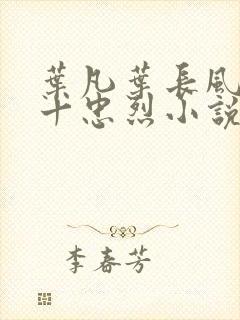 葉凡葉長風
十忠烈小說
李春芳